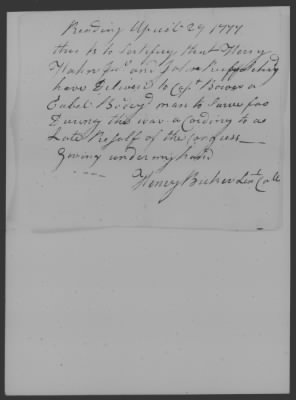 Reading April 29 1777
this is to Certifiy that Henry
Hahn Junr and John
have Delivered to Capt Bower a
Eabel Bodeyd man to Sarve for
During the war acording to a
Late Resolf of the Congress
Giving under my hand
Henry Lieut Coll